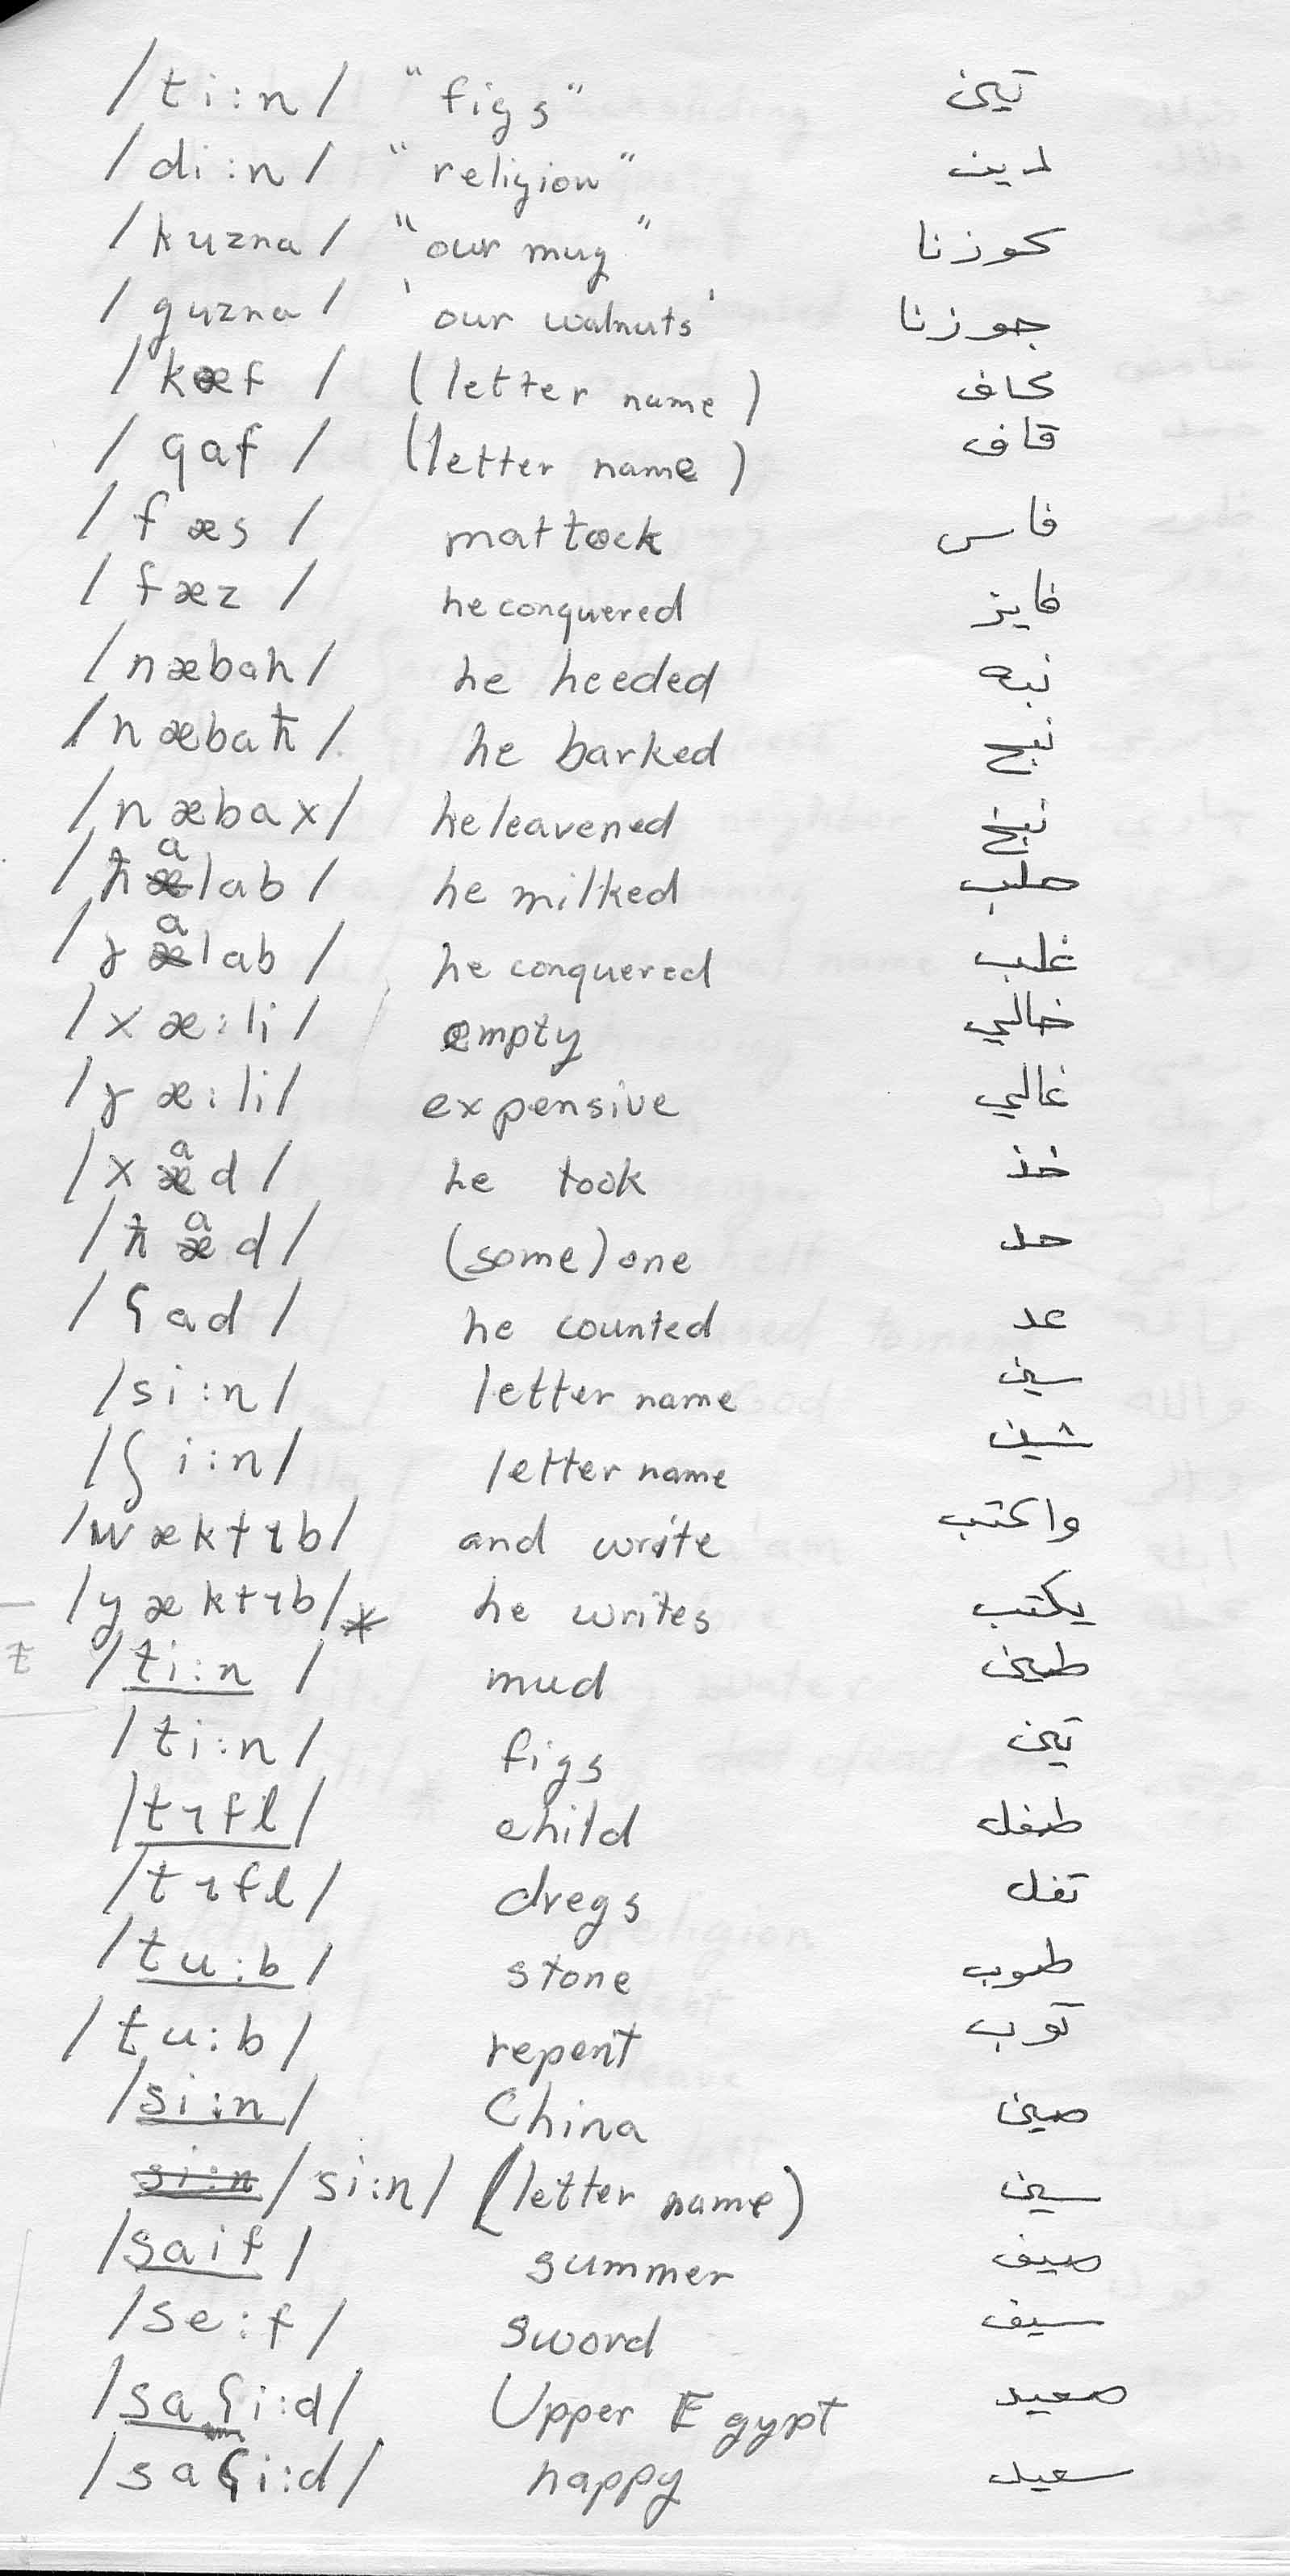 /ti:n/ "figs" تين
/di:n/ "religion" دين
/kuzna/ "our mug" كوزنا
/guzna/ 'our walnuts' جوزنا
/kæf/ (letter name) كاف
/qaf/ (letter name) قاف
/fæs/ mattock فاس
/fæz/ he conquered فايز
/næbah/ he heeded نبه
/næbaħ/ he barked نبح
/næbax/ he leavened نبخ
/ħalab/ he milked حلب
/ɣalab/ he conquered غلب
/xæ:li/ empty خالي
/ɣæ:li/ expensive غالي
/xad/ he took خذ
/ħad/ (some)one حد
/ʕad/ he counted عد
/si:n/ letter name سين
/ʃi:n/ letter name شين
/wæktɪb/ and write واكتب
/yæktɪb/* he writes يكتب
t /ti:n/ mud طين
/ti:n/ figs تين
/tɪfl/ child طفل
/tɪfl/ dregs تفل
/tu:b/ stone طوب
/tu:b/ repent توب
/si:n/ China صين
si:n /si:n/ (letter name) سين
/saif/ summer صيف
/se:f/ sword سيف
/saʕi:d/ Upper Egypt صعيد
/saʕi:d/ happy سعيد